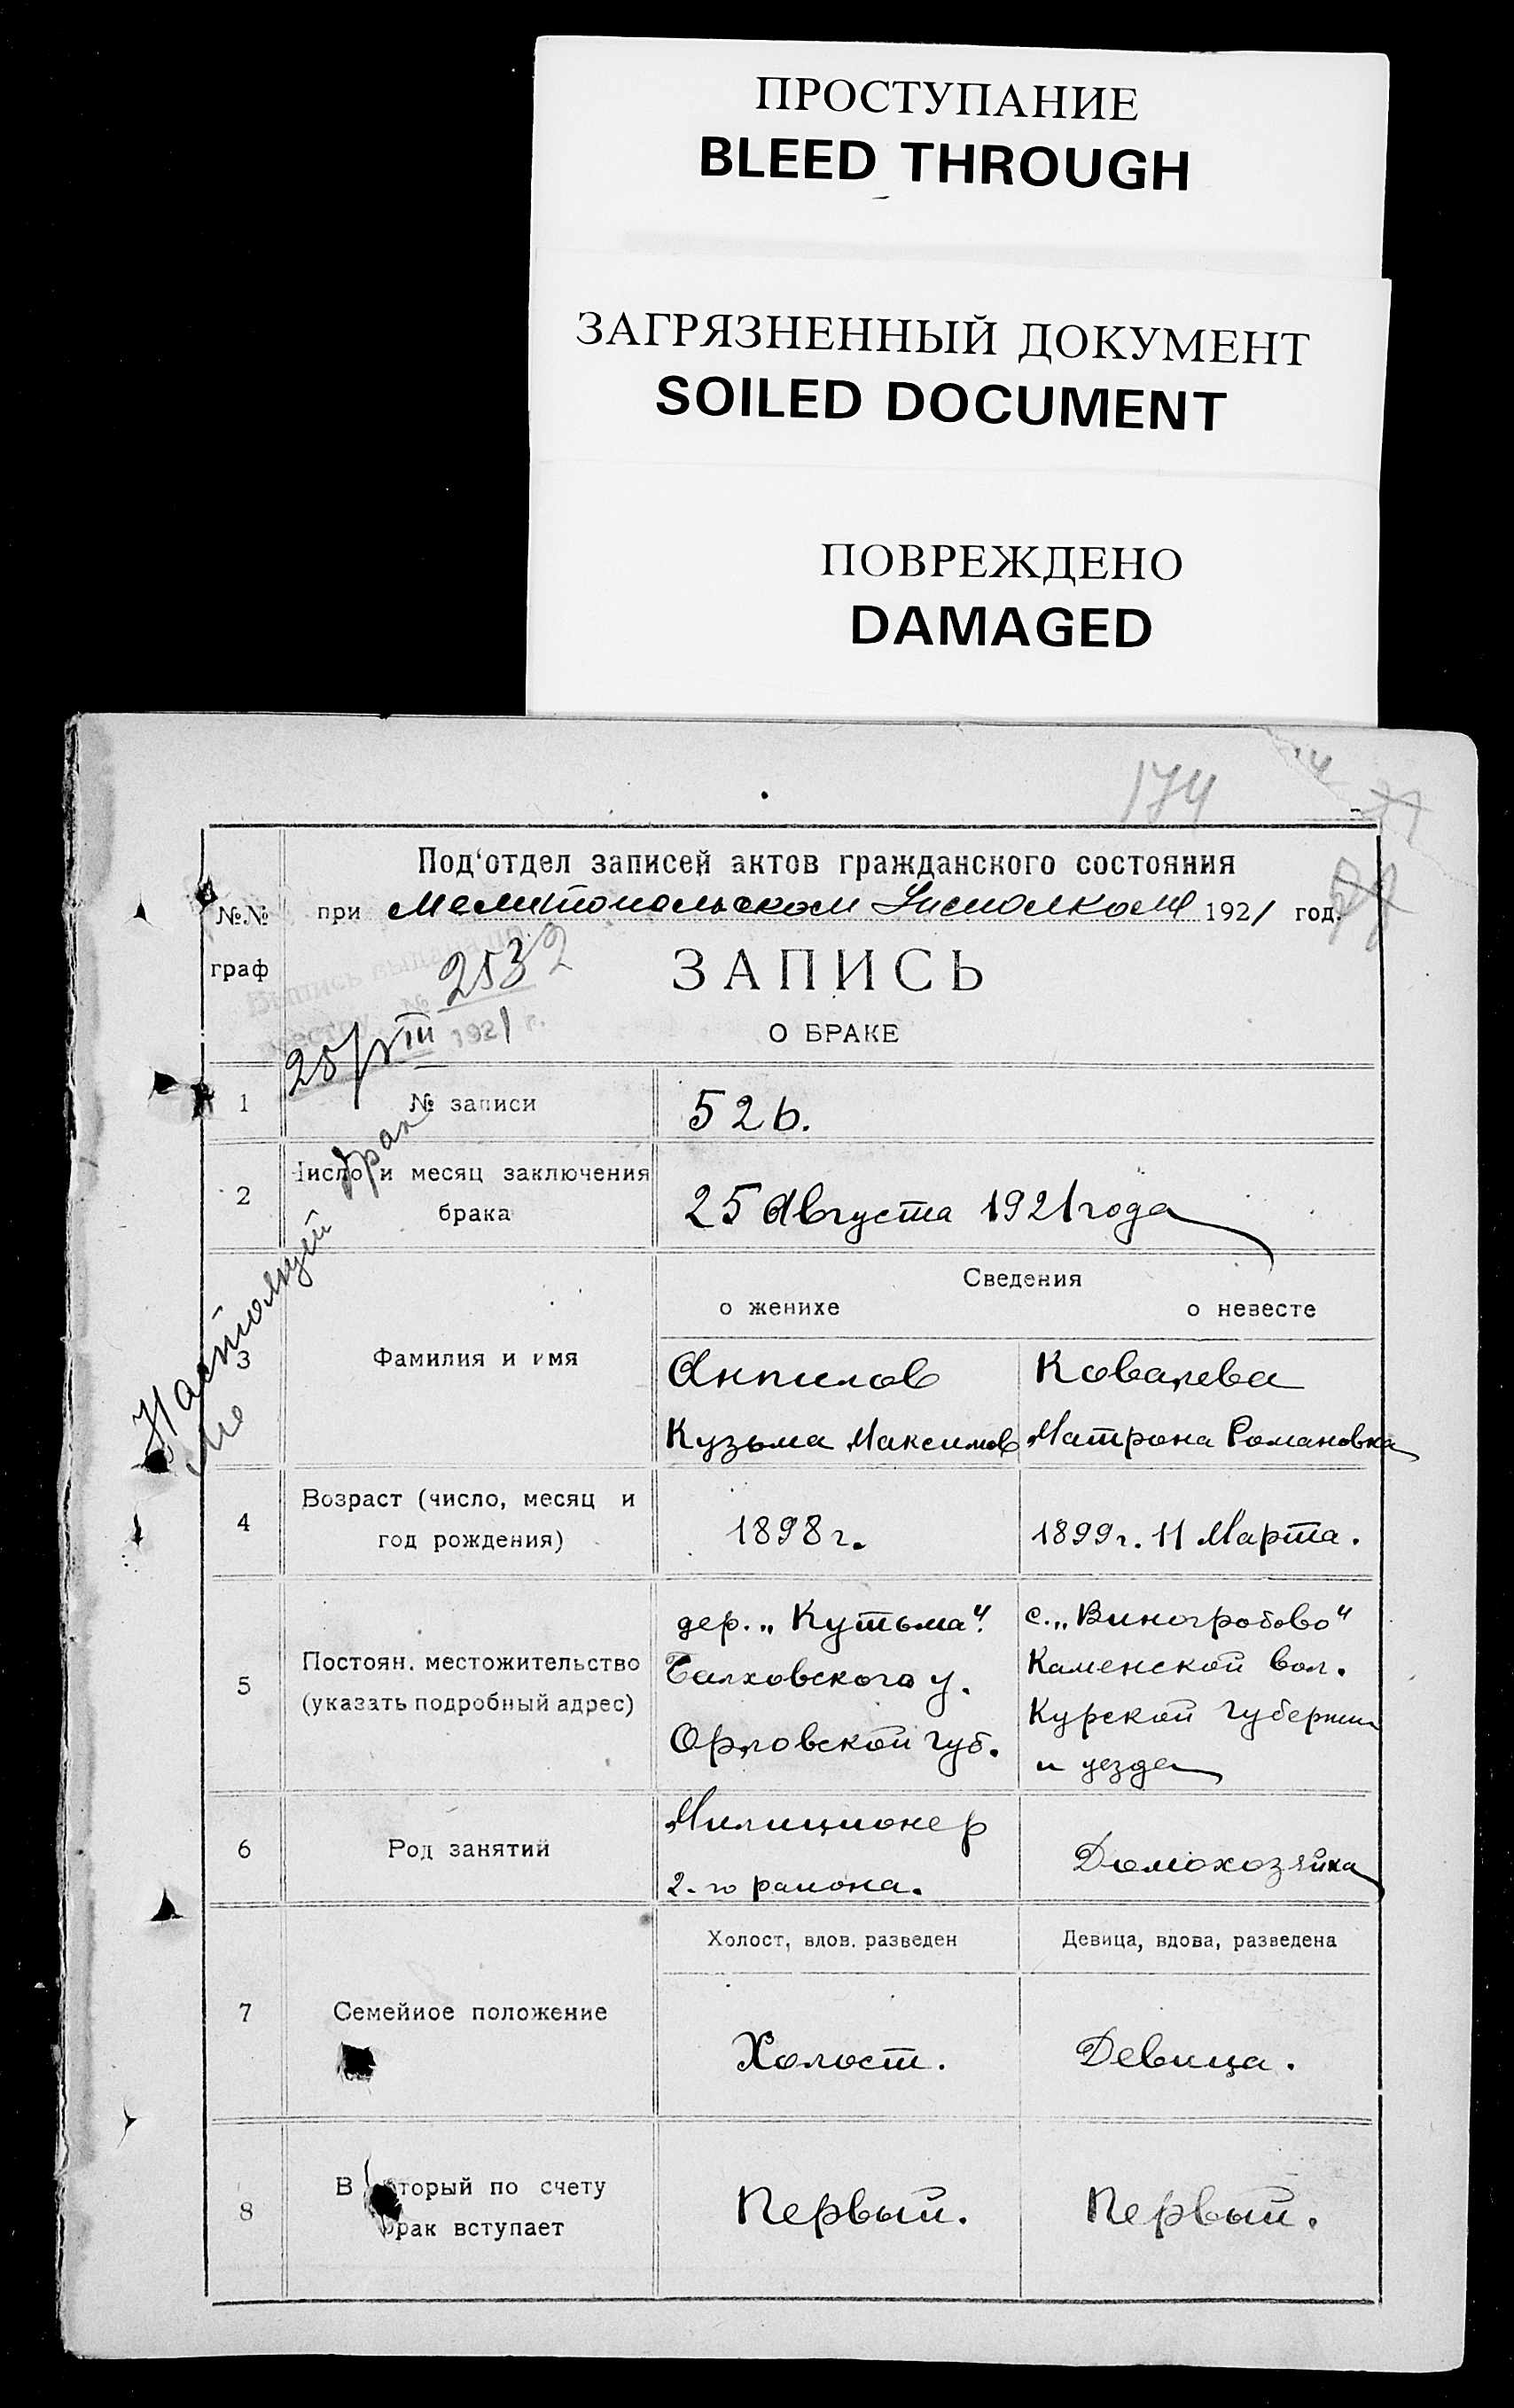 ПРОСТУПАНИЕ
BLEED THROUGH
ЗАГРЯЗНЕННЫЙ ДОКУМЕНТ
SOILED DOCUMENT
ПОВРЕЖДЕНО
DAMAGED
174
77
Под'отдел записей актов гражданского состояния
№№ граф
при Мелитопольском Исполкоме 1921 год.
ЗАПИСЬ
О БРАКЕ
Выпись выдана по
№ 2532
25/VIII 1921 г.
Настоящий брак
1 № записи 526.
2 Число и месяц заключения брака 25 Августа 1921 года
Сведения
о женихе о невесте
3 Фамилия и имя
Анпилов Ковалева
Кузьма Максимов Матрона Романовна
4 Возраст (число, месяц и год рождения)
1898 г. 1899 г. 11 Марта.
5 Постоян. местожительство
(указать подробный адрес)
дер. „Кутьма". с. „Виногробово"
Балховского у. Каменской вол.
Орловской губ. Курской губернии
и уезда
6 Род занятий
Милиционер
2-го раиона. Домохозяйка
Холост, вдов. разведен Девица, вдова, разведена
7 Семейное положение
Холост. Девица.
8 В который по счету
брак вступает
Первый. Первый.